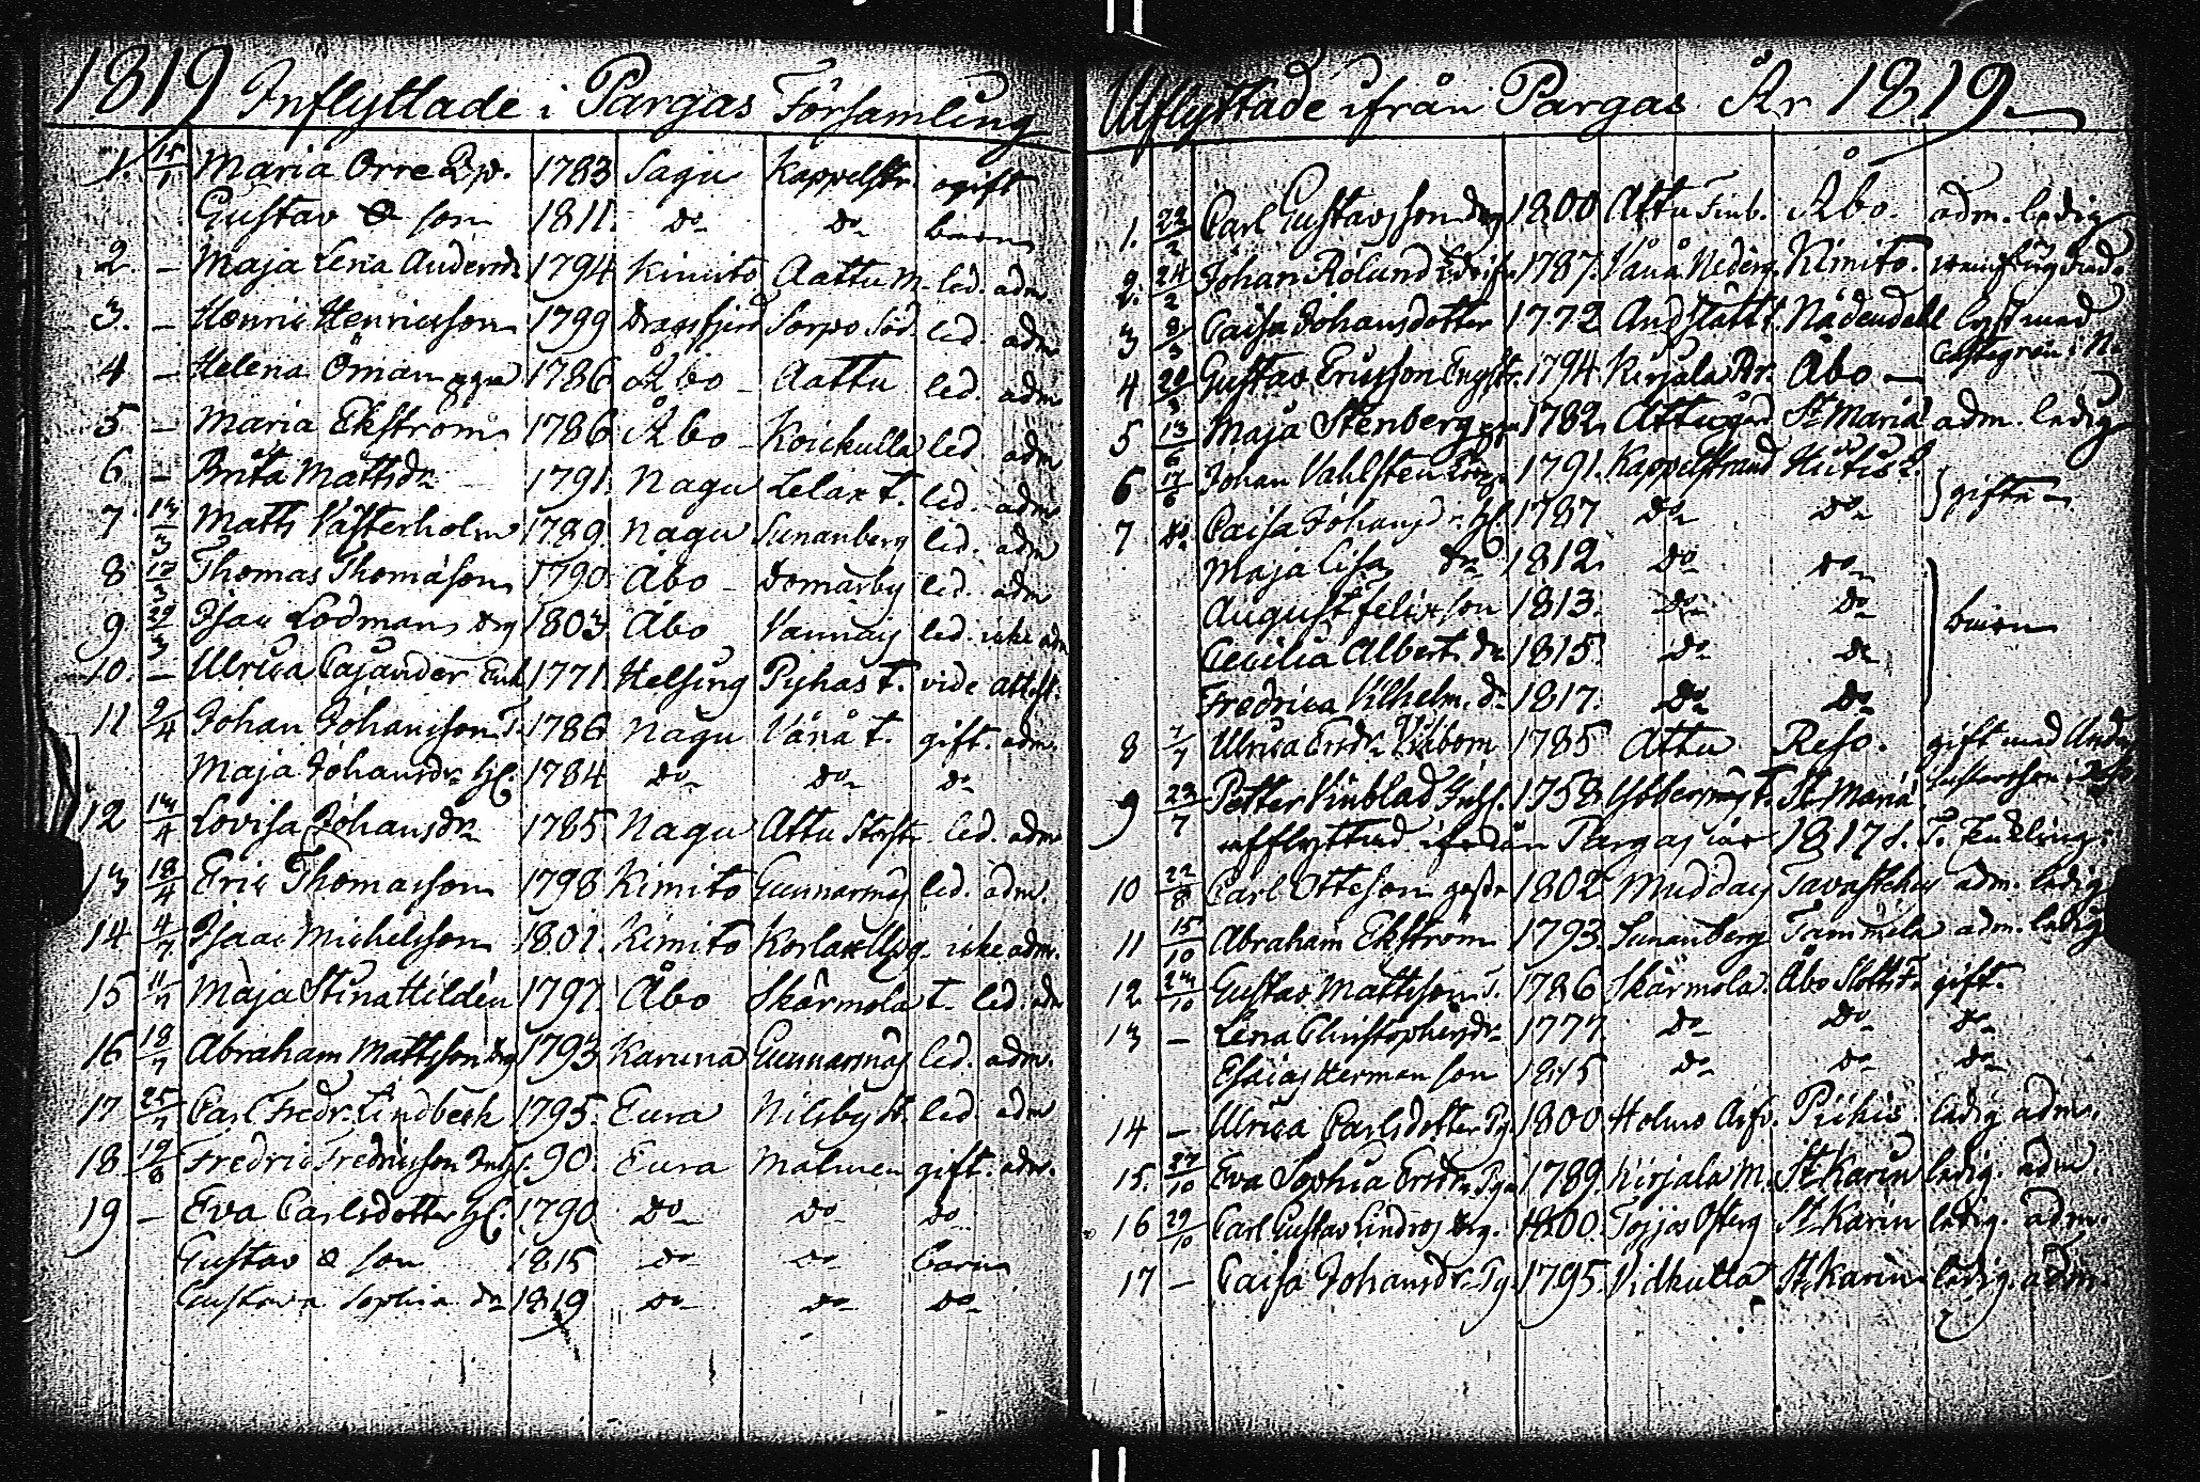 1819 Inflyttade i Pargas Församling
1. 15/1 Maria Orre 1783 Sagu Kappelstr. ogift
Gustav son 1811. do do barn
2. – Maja Lena Andersdr 1794 Kimito Aattu M. led. adm.
3. – Henric Henricsson 1799 Dragsfjerd Sorpo Söd. led. adm
4 – Helena Öman 1786 Åbo – Aattu led. adm
5 – Maria Ekström 1786 Åbo – Koickulla led. adm
6 – Brita Mattsdr 1791. Nagu Lelax t. led. adm
7 13/3 Matts Västerholm 1789. Nagu Sunanberg led. adm
8 17/3 Thomas Thomasson 1790. Åbo – Domarby led. adm
9 29/3 Isac Lodman drg 1803. Åbo Vannais led. icke adm
10. – Ulrica Cajander Enk 1771. Helsing Pyhas t. vide attest.
11 9/4 Johan Johansson T. 1786 Nagu Vånå t. gift. adm.
Maja Johansdr H. 1784 do do do
12 14/4 Lovisa Johansdr 1785 Nagu Attu led. adm
13 18/4 Eric Thomasson 1798 Kimito Gunnarsnäs led. adm.
14 4/7 Isaac Michelsson 1801. Kimito Korlax icke adm.
15 11/7 Maja Stina Hildén 1797. Åbo Skärmola t. led. adm
16 18/7 Abraham Mattsson drg 1793. Karuna Gunnarsnäs led. adm.
17 25/7 Carl Fredr. Lindbeck 1795. Eura Nilsby led. adm
18. 19/8 Fredric Fredricsson Inhs. 90. Eura Malmen gift. adm.
19 – Eva Carlsdotter H. 1790 do do do
Gustav son 1815 do do barn
Gustava Sophia dr 1819 do do do
Utflyttade ifrån Pargas År 1819.
1. 23/2 Carl Gustavsson drg 1800 Attu Åbo. adm. ledig
2. 24/2 Johan Rolund 1787. Vånå Nederg. Kimito.
3 8/3 Caisa Johansdotter 1772 Nådendal lyst med
4 20/3 Gustav Ericsson Engstr. 1794. Kirjala Åbo – Castegren i N.
5 13/6 Maja Stenberg 1782. Attu St Maria adm. ledig
6 17/6 Johan Vahlsten 1791. Kappelstrand Hitis
7 do Caisa Johansdr H. 1787 do do gifta
Maja Lisa dr 1812. do do
August Felix son 1813. do do
Cecilia Albert. dr 1815. do do barn
Fredrica Vilhelm. dr 1817. do do
8 7/7 Ulrica Ersdr Vikbom 1785 Attu Reso. gift med
9 23/7 Petter Vinblad Inhs. 1758 St Maria
utflyttad ifrån Pargas år 1817
10 22/8 Carl Otteson 1802 Muddais Tavastehus adm. ledig
11 15/10 Abraham Ekström 1793. Sunanberg Tammela adm. ledig
12. 24/10 Gustav Mattsson T. 1786 Skärmola. Åbo Slotts gift.
13 – Lena Christophersdr 1777. do do do
Esaias Herman son 1815 do do do
14 – Ulrica Carlsdotter Pg. 1800. Holmo Pikis ledig adm.
15. 24/10 Eva Sophia Ersdr Pga 1789. Kirjala M. St Karin ledig. adm
16 29/10 Carl Gustav Lindros drg. 1800. Tojjas Österg St Karin ledig. adm.
17 – Caisa Johansdr Pg. 1795. Vidkulla St Karin ledig. adm.